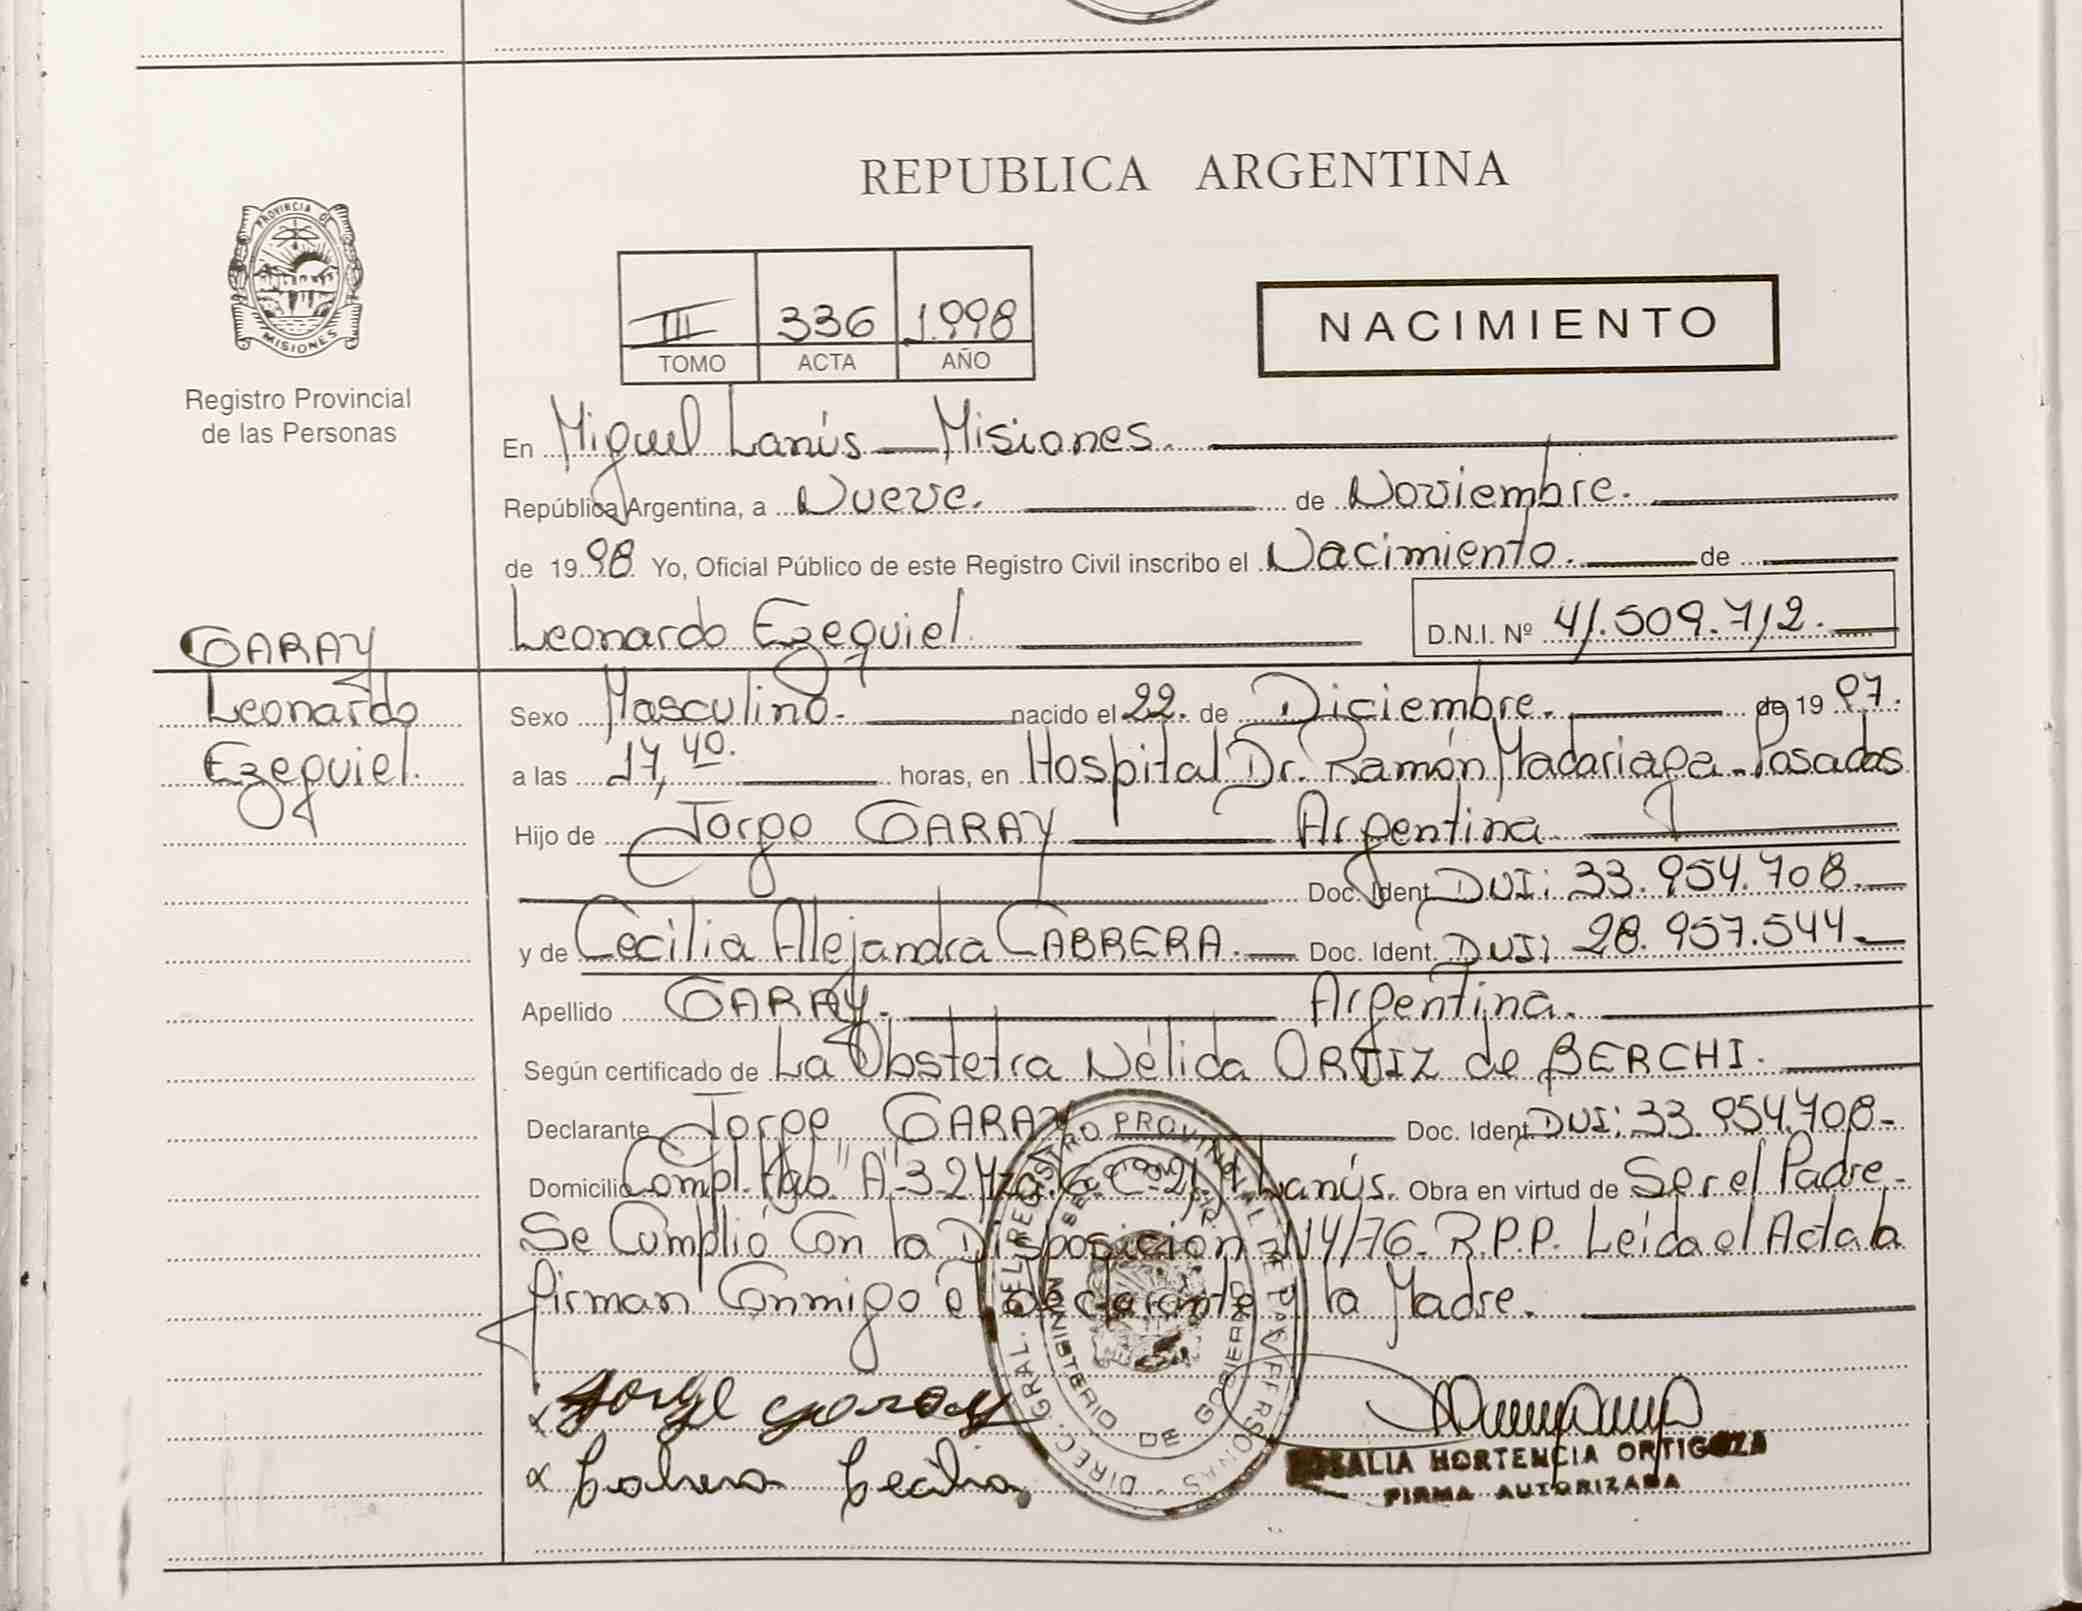 REPUBLICA ARGENTINA
PROVINCIA DE
MISIONES
Registro Provincial
de las Personas
III 336 1.998
TOMO ACTA AÑO
NACIMIENTO
En Miguel Lanús — Misiones.
República Argentina, a Nueve. de Noviembre.
de 1998 Yo, Oficial Público de este Registro Civil inscribo el Nacimiento. de
Leonardo Ezequiel. D.N.I. Nº 41.509.712.
GARAY
Leonardo
Ezequiel.
Sexo Masculino. nacido el 22. de Diciembre. de 1997.
a las 17,40. horas, en Hospital Dr. Ramón Madariaga - Posadas
Hijo de Jorge GARAY Argentina
Doc. Ident. DNI: 33.954.708.
y de Cecilia Alejandra CABRERA. Doc. Ident. DNI: 28.957.544.
Apellido GARAY. Argentina.
Según certificado de La Obstetra Nélida ORTIZ de BERCHI.
Declarante Jorge GARAY Doc. Ident. DNI: 33.954.708-
Domicilio Compl. Hab. "A" 3-2 Mza. C-21. M. Lanús. Obra en virtud de Ser el Padre.
Se Cumplió Con la Disposición 114/76- R.P.P. Leída el Acta la
firman Conmigo el declarante y la Madre.
Jorge garay
Cabrera Cecilia
DIREC. GRAL. DEL REGISTRO PROVINCIAL DE LAS PERSONAS
MINISTERIO DE GOBIERNO
ROSALIA HORTENCIA ORTIGOZA
FIRMA AUTORIZADA